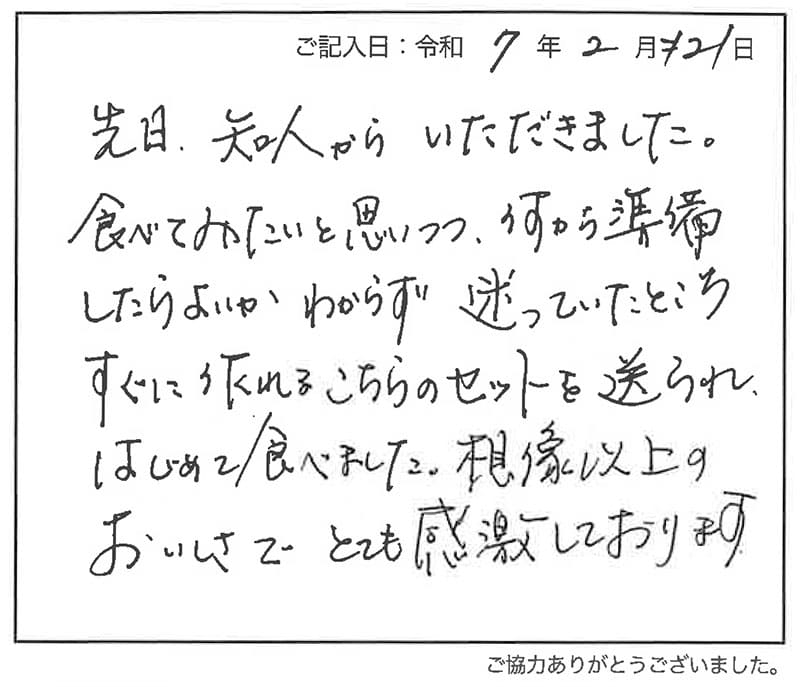 ご記入日：令和 7 年 2 月 21 日
先日、知人から いただきました。
食べてみたいと思いつつ、何から準備
したらよいか わからず 迷っていたところ
すぐに作れるこちらのセットを送られ、
はじめて食べました。想像以上の
おいしさで とても感激しております
ご協力ありがとうございました。